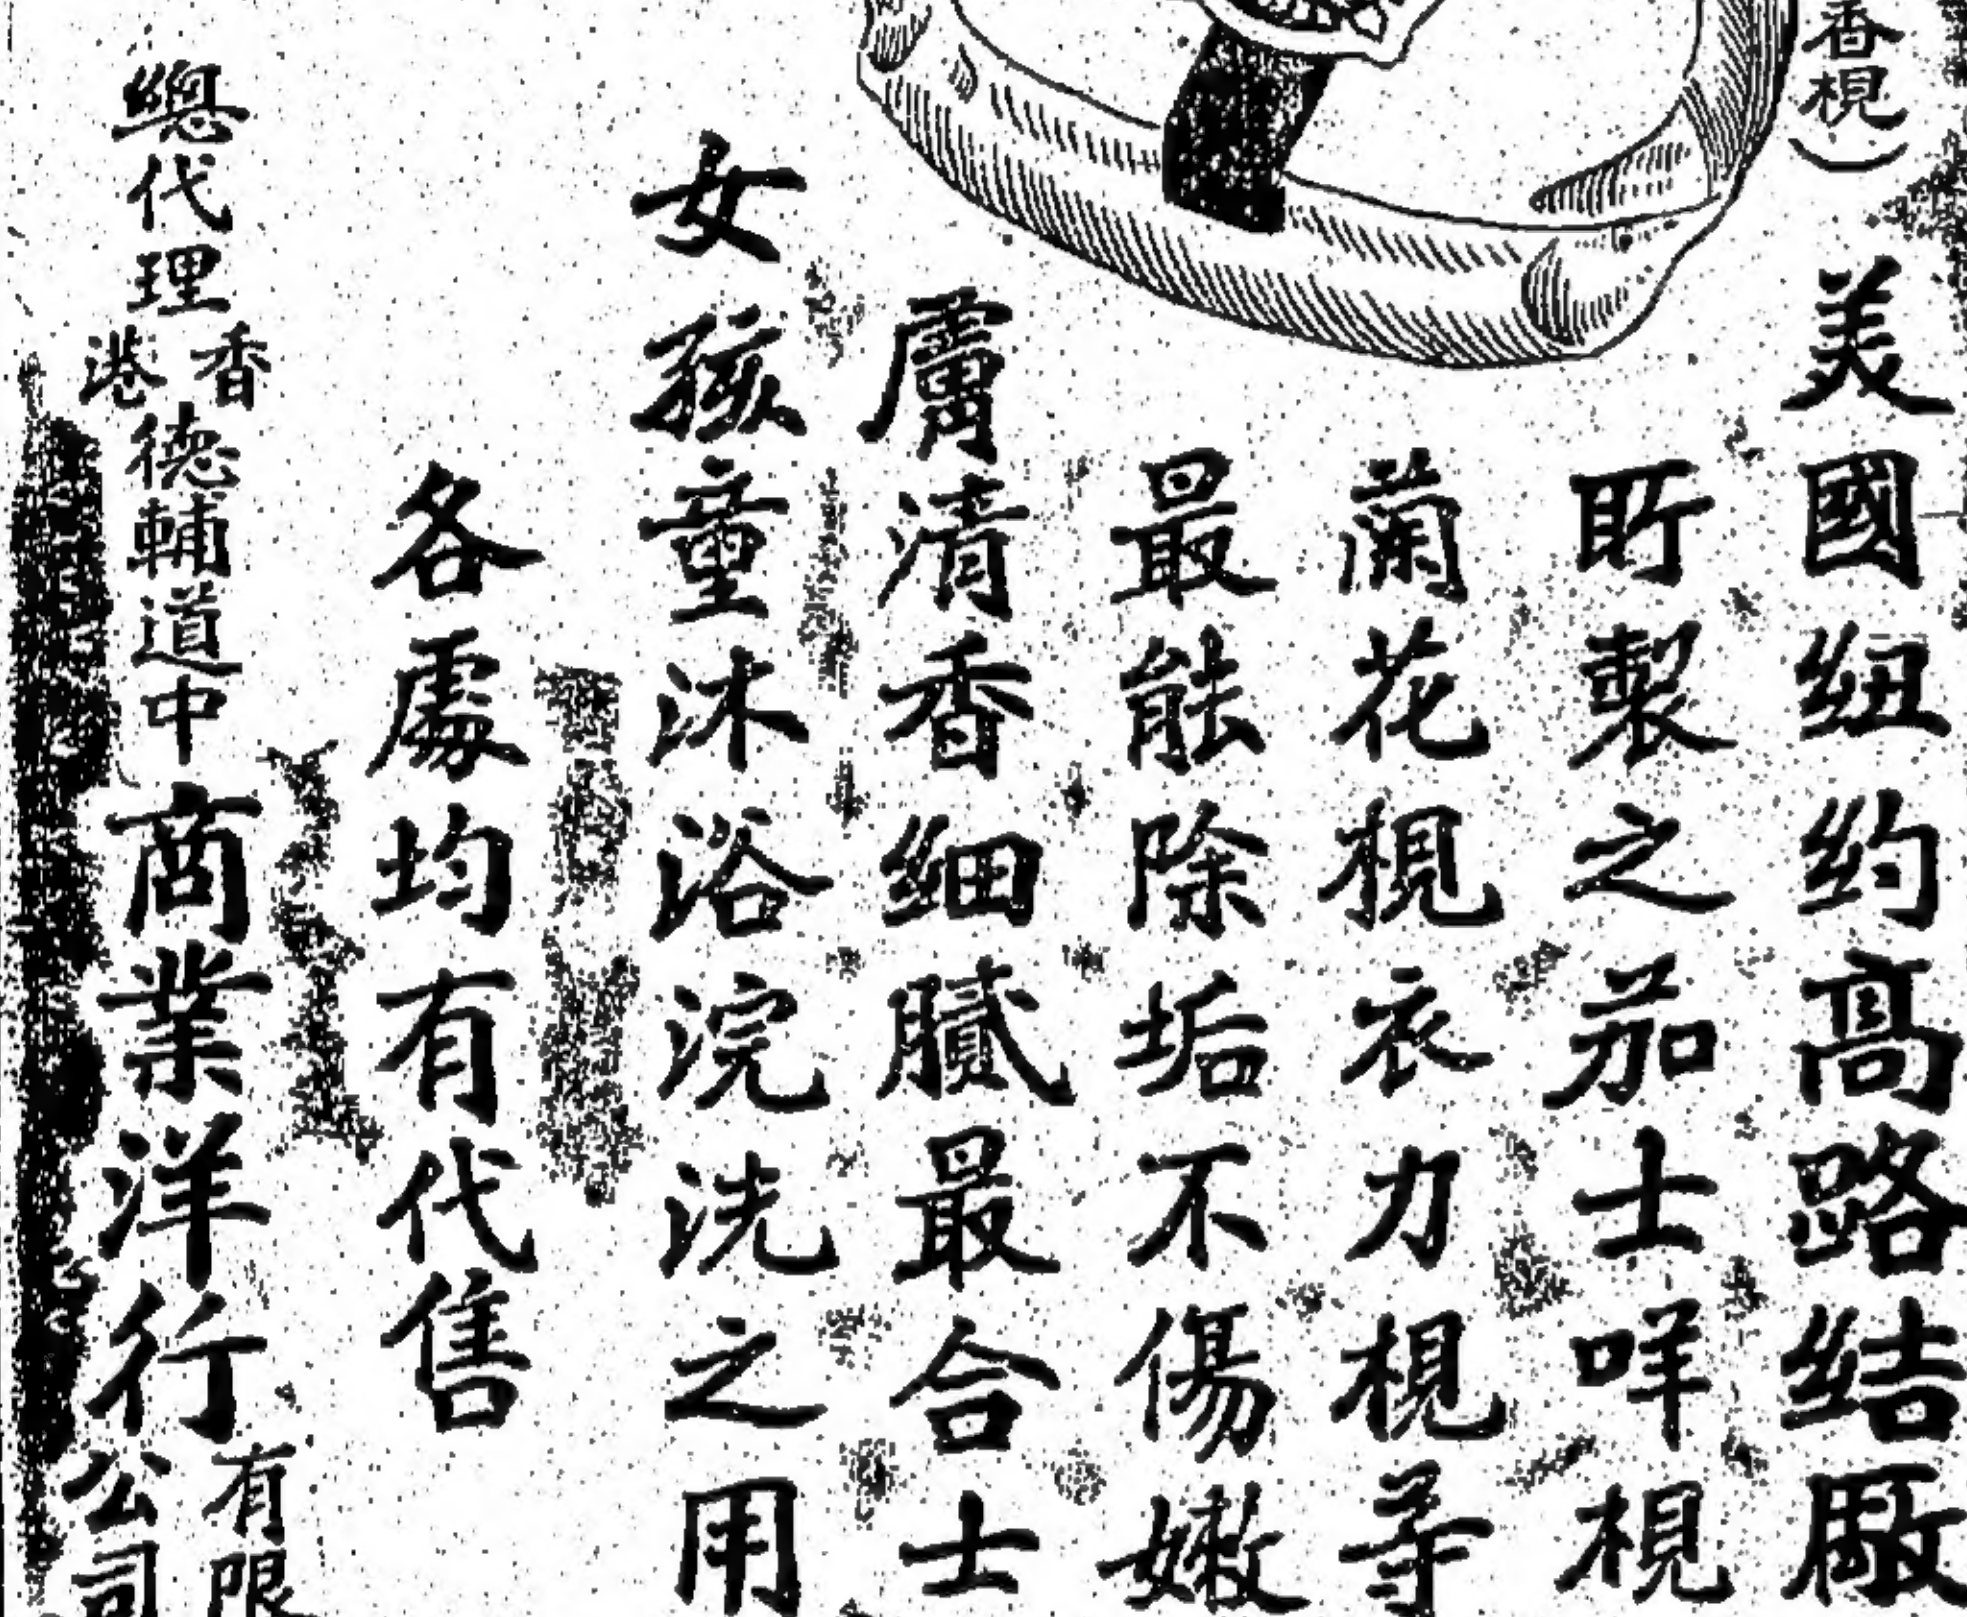 香梘）
美國纽约高路结厰
所製之茄士咩梘
蘭花梘衣力梘等
最能除垢不傷嫩
膚清香细膩最合士
女孩童沐浴浣洗之用
各處均有代售
總代理香港德輔道中商業洋行有限公司